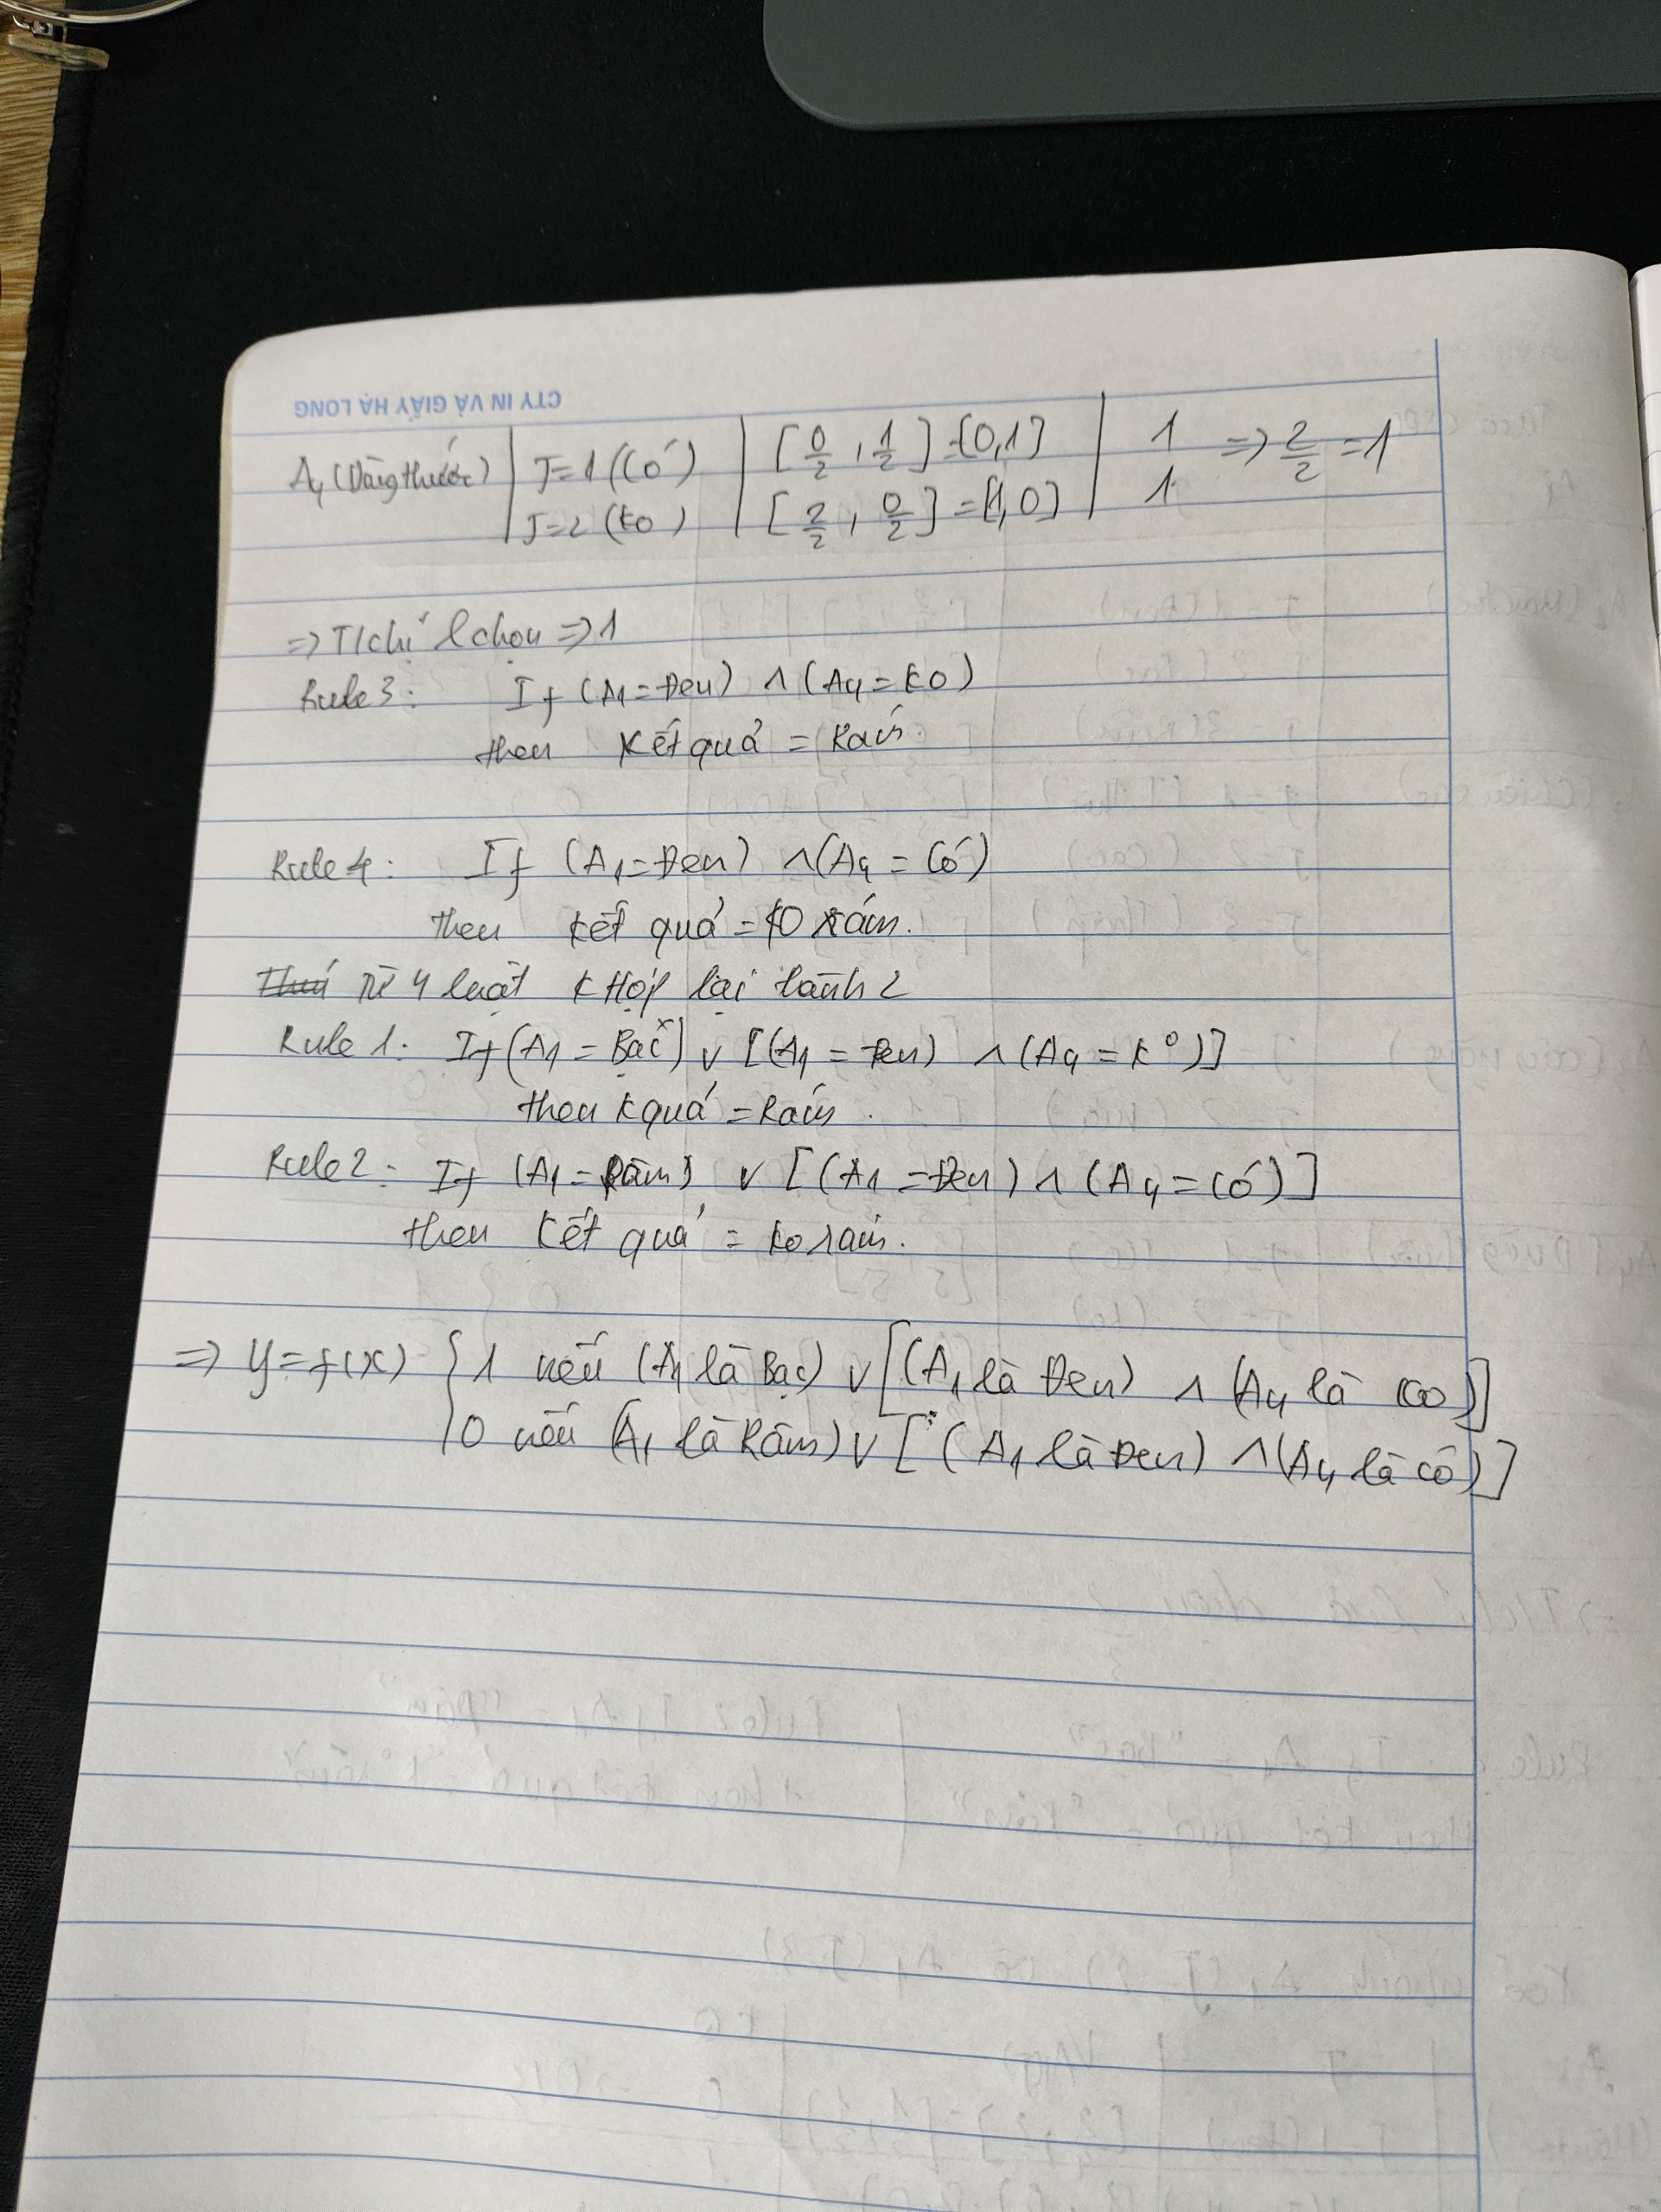 CTY IN VÀ GIẤY HẠ LONG
A4 (Dùng thuốc) | J=1 (Có) | [0/2, 1/2] = [0,1] | 1 => 2/2 = 1
J=2 (Ko) | [2/2, 0/2] = [1,0] | 1
=> T/chí lchọn => 1
Rule 3: If (A1 = Đen) ∧ (A4 = KO)
then Kết quả = Rám.
Rule 4: If (A1 = Đen) ∧ (A4 = Có)
then Kết quả = KO rám.
Từ 4 luật KHợp lại thành 2
Rule 1: If (A1 = Bạc) ∨ [(A1 = Đen) ∧ (A4 = K°)]
then Kquả = Rám.
Rule 2: If (A1 = Râm) ∨ [(A1 = Đen) ∧ (A4 = Có)]
then Kết quả = Ko rám.
=> y = f(x) = { 1 nếu (A1 là Bạc) ∨ [(A1 là Đen) ∧ (A4 là KO)]
0 nếu (A1 là Râm) ∨ [(A1 là Đen) ∧ (A4 là có)]